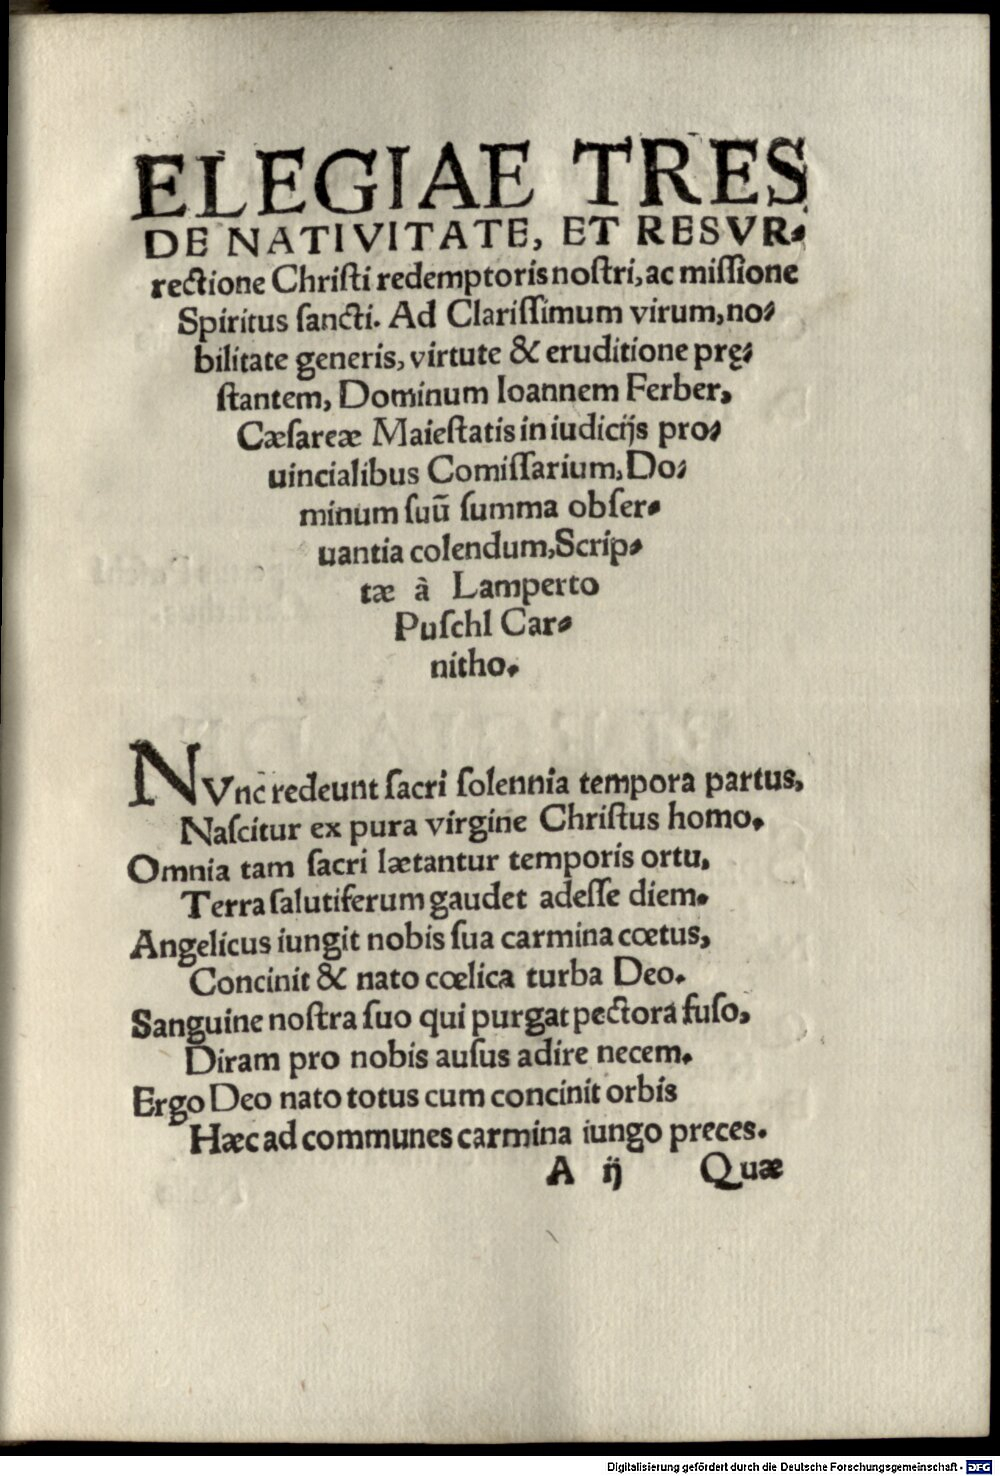 ELEGIAE TRES
DE NATIVITATE, ET RESVR-
rectione Chriſti redemptoris noſtri, ac miſſione
Spiritus ſancti. Ad Clariſſimum virum, no-
bilitate generis, virtute & eruditione prę-
ſtantem, Dominum Ioannem Ferber,
Cæſareæ Maieſtatis in iudicijs pro-
uincialibus Comiſſarium, Do-
minum ſuū ſumma obſer-
uantia colendum, Scrip-
tæ à Lamperto
Puſchl Car-
nitho.
NVnc redeunt ſacri ſolennia tempora partus,
Naſcitur ex pura virgine Chriſtus homo.
Omnia tam ſacri lætantur temporis ortu,
Terra ſalutiferum gaudet adeſſe diem.
Angelicus iungit nobis ſua carmina cœtus,
Concinit & nato cœlica turba Deo.
Sanguine noſtra ſuo qui purgat pectora fuſo,
Diram pro nobis auſus adire necem.
Ergo Deo nato totus cum concinit orbis
Hæc ad communes carmina iungo preces.
A ij Quæ
Digitalisierung gefördert durch die Deutsche Forschungsgemeinschaft - DFG